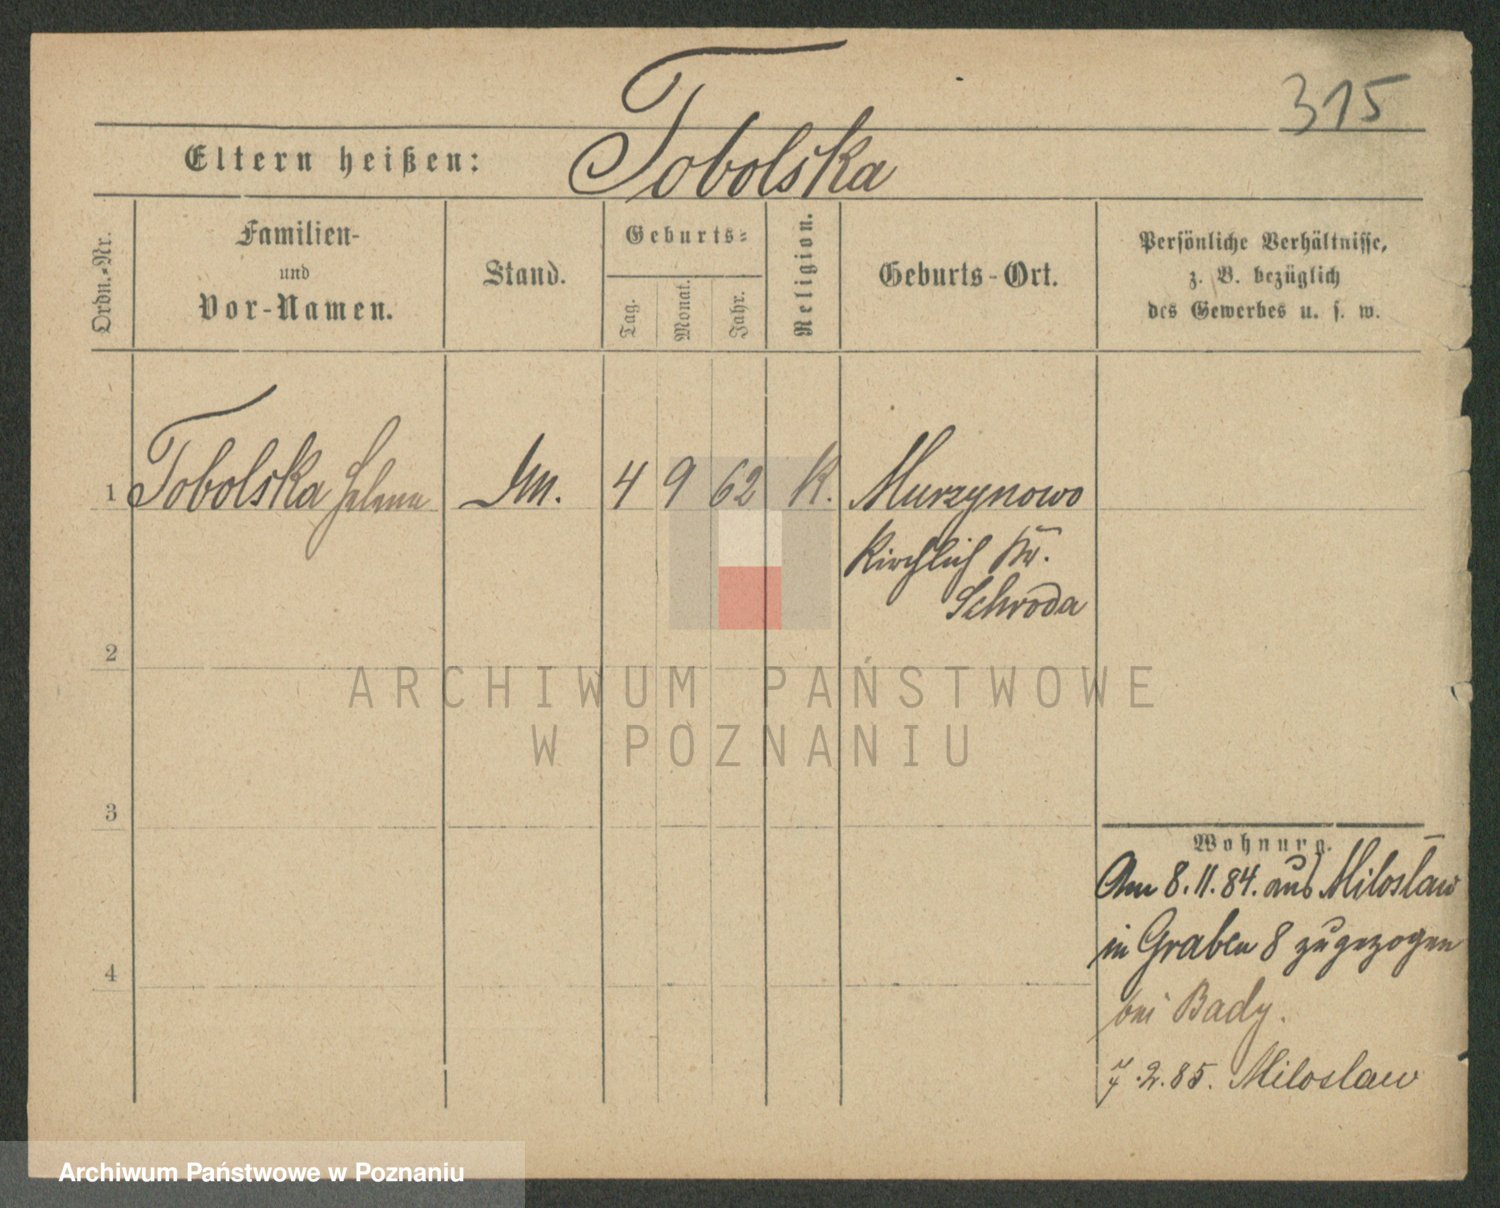 315
Tobolska
Eltern heißen:
Ordn.-Nr.
Familien-
und
Vor-Namen.
Stand.
Geburts-
Tag.
Monat.
Jahr.
Religion.
Geburts-Ort.
Persönliche Verhältnisse,
z. B. bezüglich
des Gewerbes u. s. w.
1 Tobolska Helena 4 9 62 K. Murzynowo
Kirchlich Kr.
Schroda
2
ARCHIWUM PAŃSTWOWE
W POZNANIU
3
Wohnung.
Am 8.11.84. aus Miloslaw
in Graben 8 zugezogen
4
bei Bady.
7.2.85. Miloslaw
Archiwum Państwowe w Poznaniu